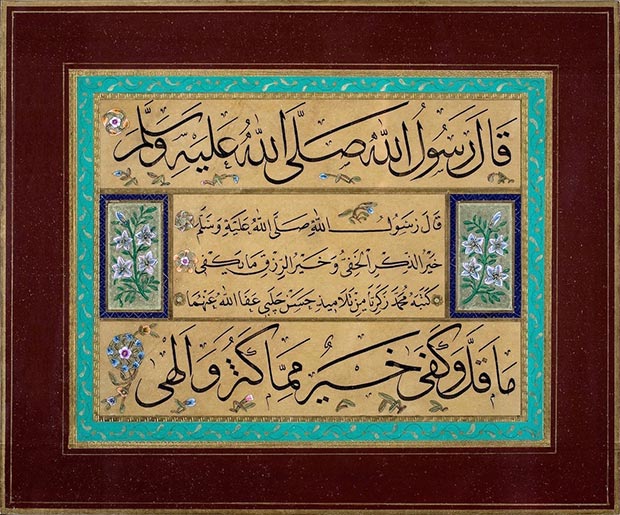 قَالَ رَسُولُ اللّٰهِ صَلَّى اللّٰهُ عَلَيْهِ وَسَلَّمَ
قَالَ رَسُولُ اللّٰهِ صَلَّى اللّٰهُ عَلَيْهِ وَسَلَّمَ
خَيْرُ الذِّكْرِ الْخَفِيُّ وَخَيْرُ الرِّزْقِ مَا يَكْفِي
كتبه محمد زكريا من تلاميذ حسن چلبي عفا الله عنهما
مَا قَلَّ وَكَفَى خَيْرٌ مِمَّا كَثُرَ وَأَلْهَى